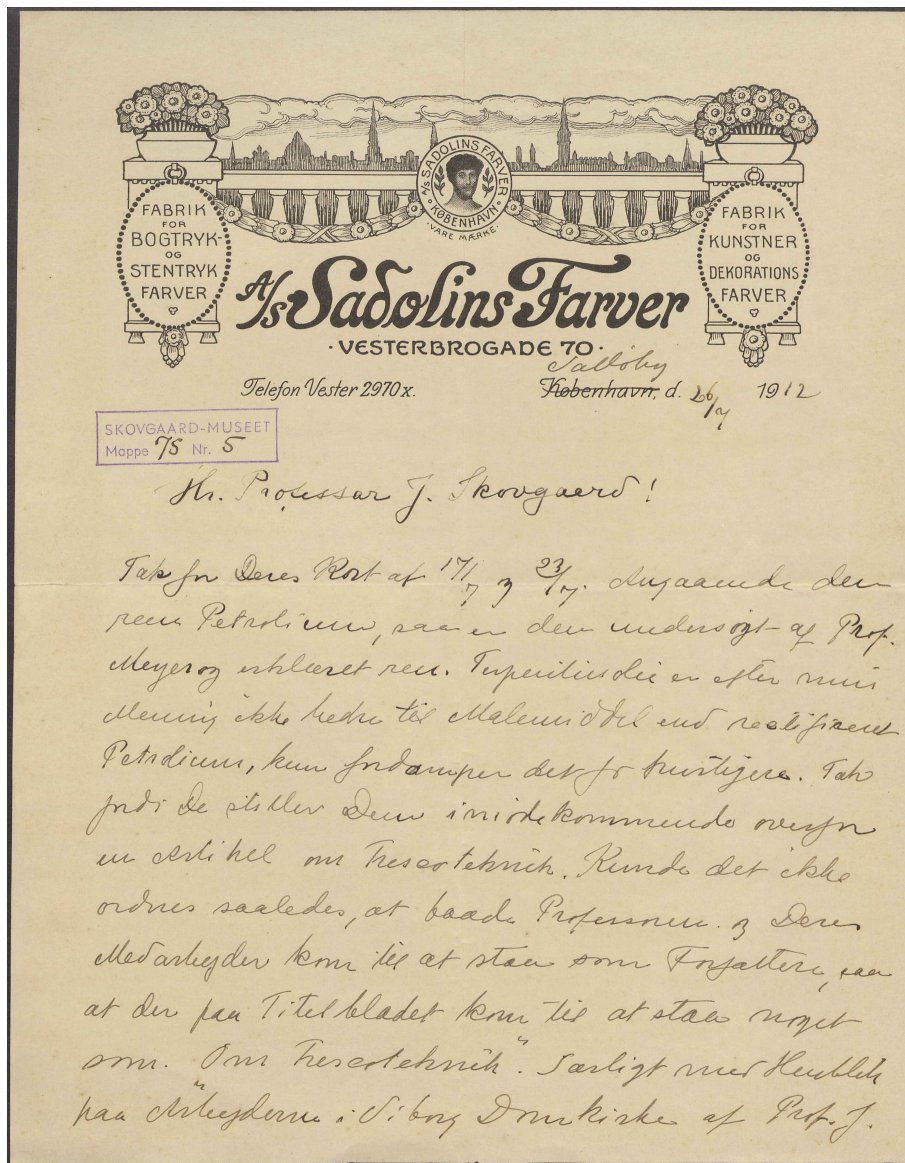 A/S SADOLINS FARVER
KØBENHAVN
VARE MÆRKE.
FABRIK
FOR
BOGTRYK-
OG
STENTRYK
FARVER
FABRIK
FOR
KUNSTNER
OG
DEKORATIONS
FARVER
A/S Sadolins Farver
· VESTERBROGADE 70 ·
Telefon Vester 2970x.
København, d. 26/7 1912
SKOVGAARD-MUSEET
Mappe 75 Nr. 5
Hr. Professor J. Skovgaard!
Tak for Deres Kort af 17/7 og 23/7. Angaaende den
rene Petroleum, saa er den undersøgt af Prof.
Meyer og erklæret ren. Terpentinolie er efter min
Mening ikke bedre til Malemiddel end rectificeret
Petroleum, kun fordamper det før hurtigere. Tak
fordi De stiller Dem imødekommende overfor
en Artikel om Frescoteknik. Kunde det ikke
ordnes saaledes, at baade Professoren og Deres
Medarbejder kom til at staa som Forfattere, saa
at der paa Titelbladet kom til at staa noget
som. "Om Frescoteknik". Særligt med Henblik
paa Arbejderne i Viborg Domkirke af Prof. J.